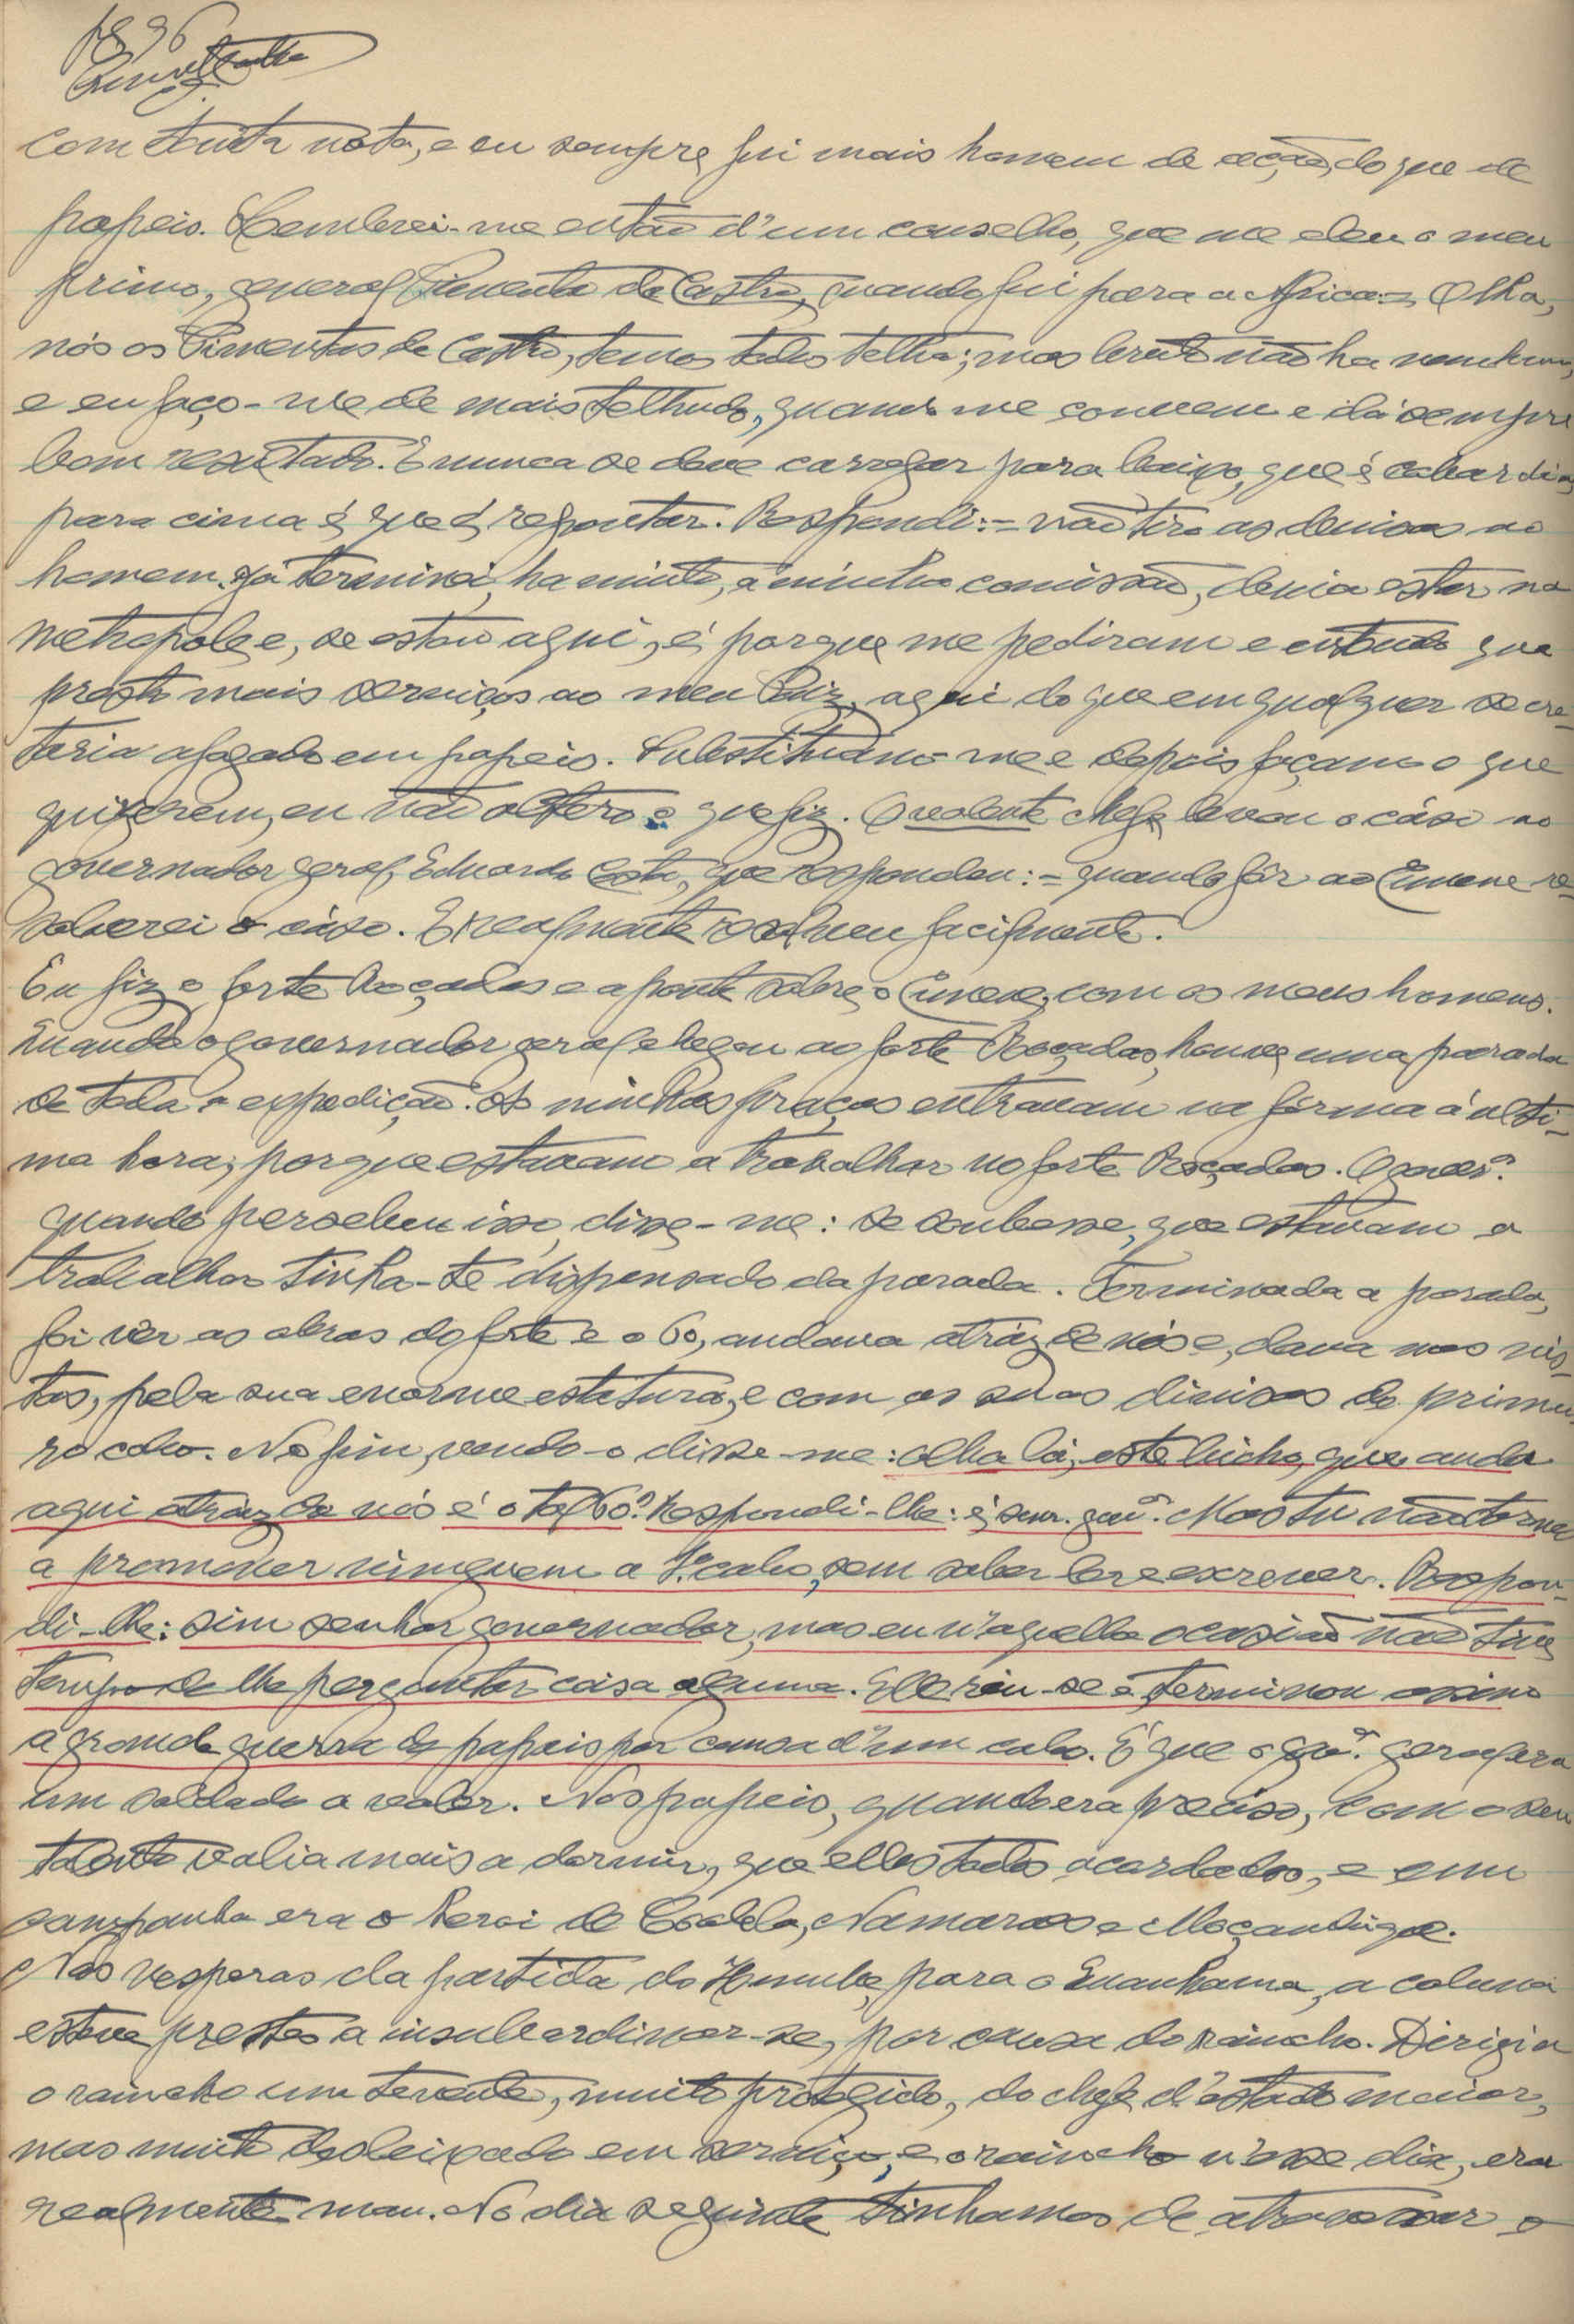 1896
com tanta nota, e eu sempre fui mais homem de acção, do que de
papeis. Lembrei-me então d'um conselho, que me deu o meu
primo, general Pimenta de Castro, quando fui para a Africa:= Olha,
nós os Pimentas de Castro, temos todos telha; mas bruto não ha nenhum,
e eu faço-me de mais telhudo, quando me convem e dá sempre
bom resultado. E nunca se deve carregar para baixo, que é cobardia,
para cima é que é repontar. Respondi:= não tiro as divisas ao
homem. Já terminei, ha muito, a minha comissão, devia estar na
metropole e, se estou aqui, é porque me pediram e entendo que
presto mais serviços ao meu Paiz, aqui do que em qualquer secre-
taria afogado em papeis. Substituam-me e depois façam o que
quizerem, eu não altero o que fiz. O valente chefe levou o cáso ao
governador geral, Eduardo Costa, que respondeu:= quando fôr ao Cunene re-
solverei o cáso. E realmente resolveu facilmente.
Eu fiz o forte Roçadas e a ponte sobre o Cunene, com os meus homens.
Quando o governador geral chegou ao forte Roçadas, houve uma parada
de toda a expedição. As minhas praças entravam na fórma á ulti-
ma hora, porque estavam a trabalhar no forte Roçadas. O govern.or
quando percebeu isso, disse-me: se soubesse, que estavam a
trabalhar tinha-te dispensado da parada. Terminada a parada,
foi ver as obras do forte e o 60, andava atráz de nós e, dava nas vis-
tas, pela sua enorme estatura, e com as suas divisas de primei-
ro cabo. No fim, vendo-o disse-me: olha lá, este bicho, que anda
aqui atraz de nós é o tal 60? Respondi-lhe: é senr. gov.or. Mas tu não tornes
a promover ninguem a 1.º cabo, sem saber ler e escrever. Respon-
di-lhe: sim senhor governador, mas eu n'aquella ocasião não tive
tempo de lhe perguntar coisa alguma. Elle riu-se e terminou assim
a grande guerra de papeis por causa d'um cabo. É que o gov.or geral era
um soldado a valer. Nos papeis, quando era preciso, com o seu
talento valia mais a dormir, que elles todos acordados, e em
campanha era o heroi de Coolela, Namarraes e Moçambique.
Nas vesperas da partida do Humbe, para o Cuanhama, a coluna
esteve prestes a insubordinar-se, por causa do rancho. Dirigia
o rancho um tenente, muito protegido, do chefe d'estado maior,
mas muito desleixado em serviço, e o rancho n'esse dia, era
realmente mau. No dia seguinte tinhamos de atravessar o